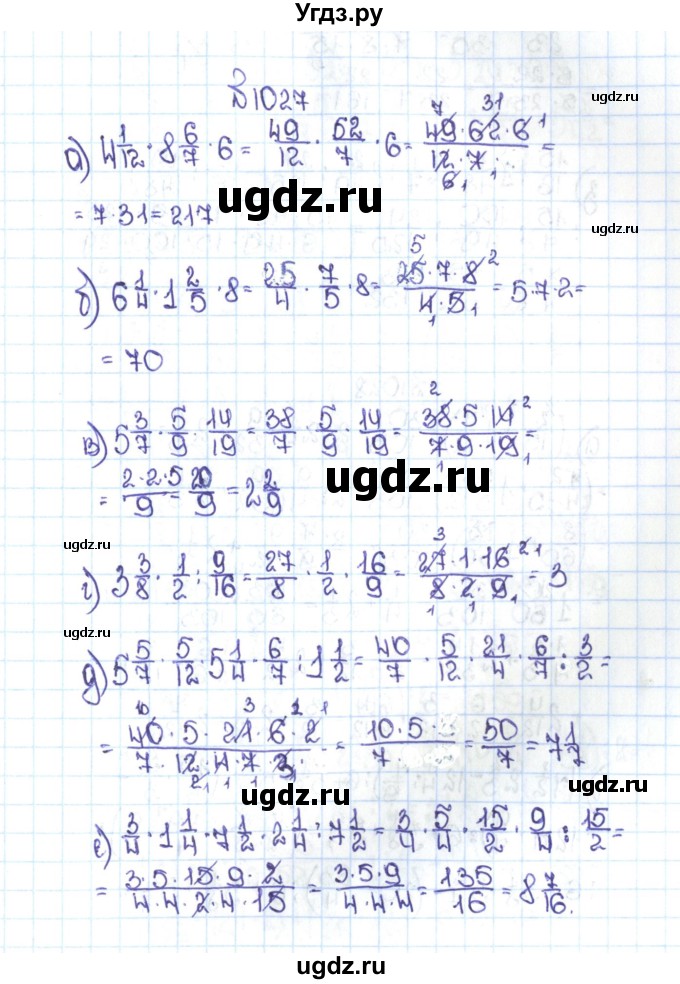 Угдз.ру
№1027
ugdz.ru
а) 4 1/12 · 8 6/7 · 6 = 49/12 · 62/7 · 6 = 49·62·6/12·7 =
7 31 1 6 1 1
ugdz.ru
= 7·31 = 217
ugdz.ru
б) 6 1/4 · 1 2/5 · 8 = 25/4 · 7/5 · 8 = 25·7·8/4·5 = 5·7·2 =
5 2 1 1
= 70
ugdz.ru
в) 5 3/7 · 5/9 · 14/19 = 38/7 · 5/9 · 14/19 = 38·5·14/7·9·19 =
2 2 1 1
= 2·2·5/9 = 20/9 = 2 2/9
ugdz.ru
ugdz.ru
г) 3 3/8 · 1/2 : 9/16 = 27/8 · 1/2 · 16/9 = 27·1·16/8·2·9 = 3
3 2 1 1 1 1
ugdz.ru
д) 5 5/7 · 5/12 · 5 1/4 · 6/7 : 1 1/2 = 40/7 · 5/12 · 21/4 · 6/7 : 3/2 =
= 40·5·21·6·2/7·12·4·7·3 = 10·5/7 = 50/7 = 7 1/7
10 3 2 1 2 1 1 1
ugdz.ru
ugdz.ru
е) 3/4 · 1 1/4 · 7 1/2 · 2 1/4 : 7 1/2 = 3/4 · 5/4 · 15/2 · 9/4 : 15/2 =
= 3·5·15·9·2/4·4·2·4·15 = 3·5·9/4·4·4 = 135/16 = 8 7/16.
ugdz.ru
ugdz.ru